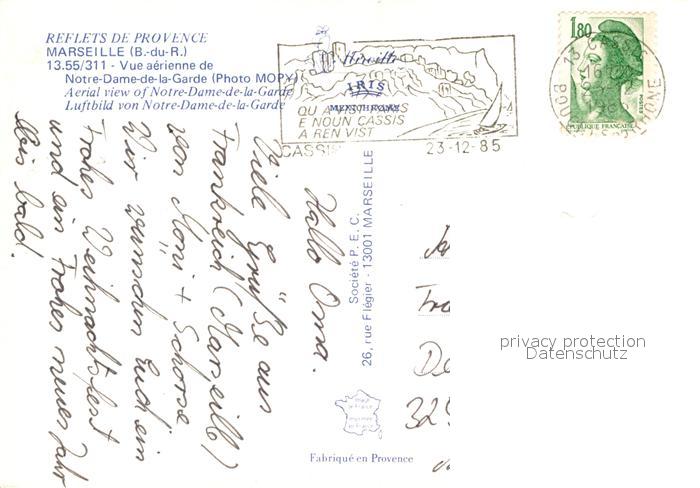 REFLETS DE PROVENCE
MARSEILLE (B.-du-R.)
13.55/311 - Vue aérienne de
Notre-Dame-de-la-Garde (Photo MOPY)
Aerial view of Notre-Dame-de-la-Garde
Luftbild von Notre-Dame-de-la-Garde
IRIS
MEXICHROME
QU A VIST PARIS
E NOUN CASSIS
A REN VIST
CASSIS
23-12-85
1,80
RÉPUBLIQUE FRANÇAISE
Hallo Oma.
Viele Grüße aus
Frankreich (Marseille)
von Moni + Schorse
Wir wünschen Euch ein
Frohes Weihnachtsfest
und ein Frohes neues Jahr
Bis bald.
Société P.E.C.
26, rue Flégier - 13001 MARSEILLE
Fra
De
325
privacy protection
Datenschutz
Fabriqué en Provence